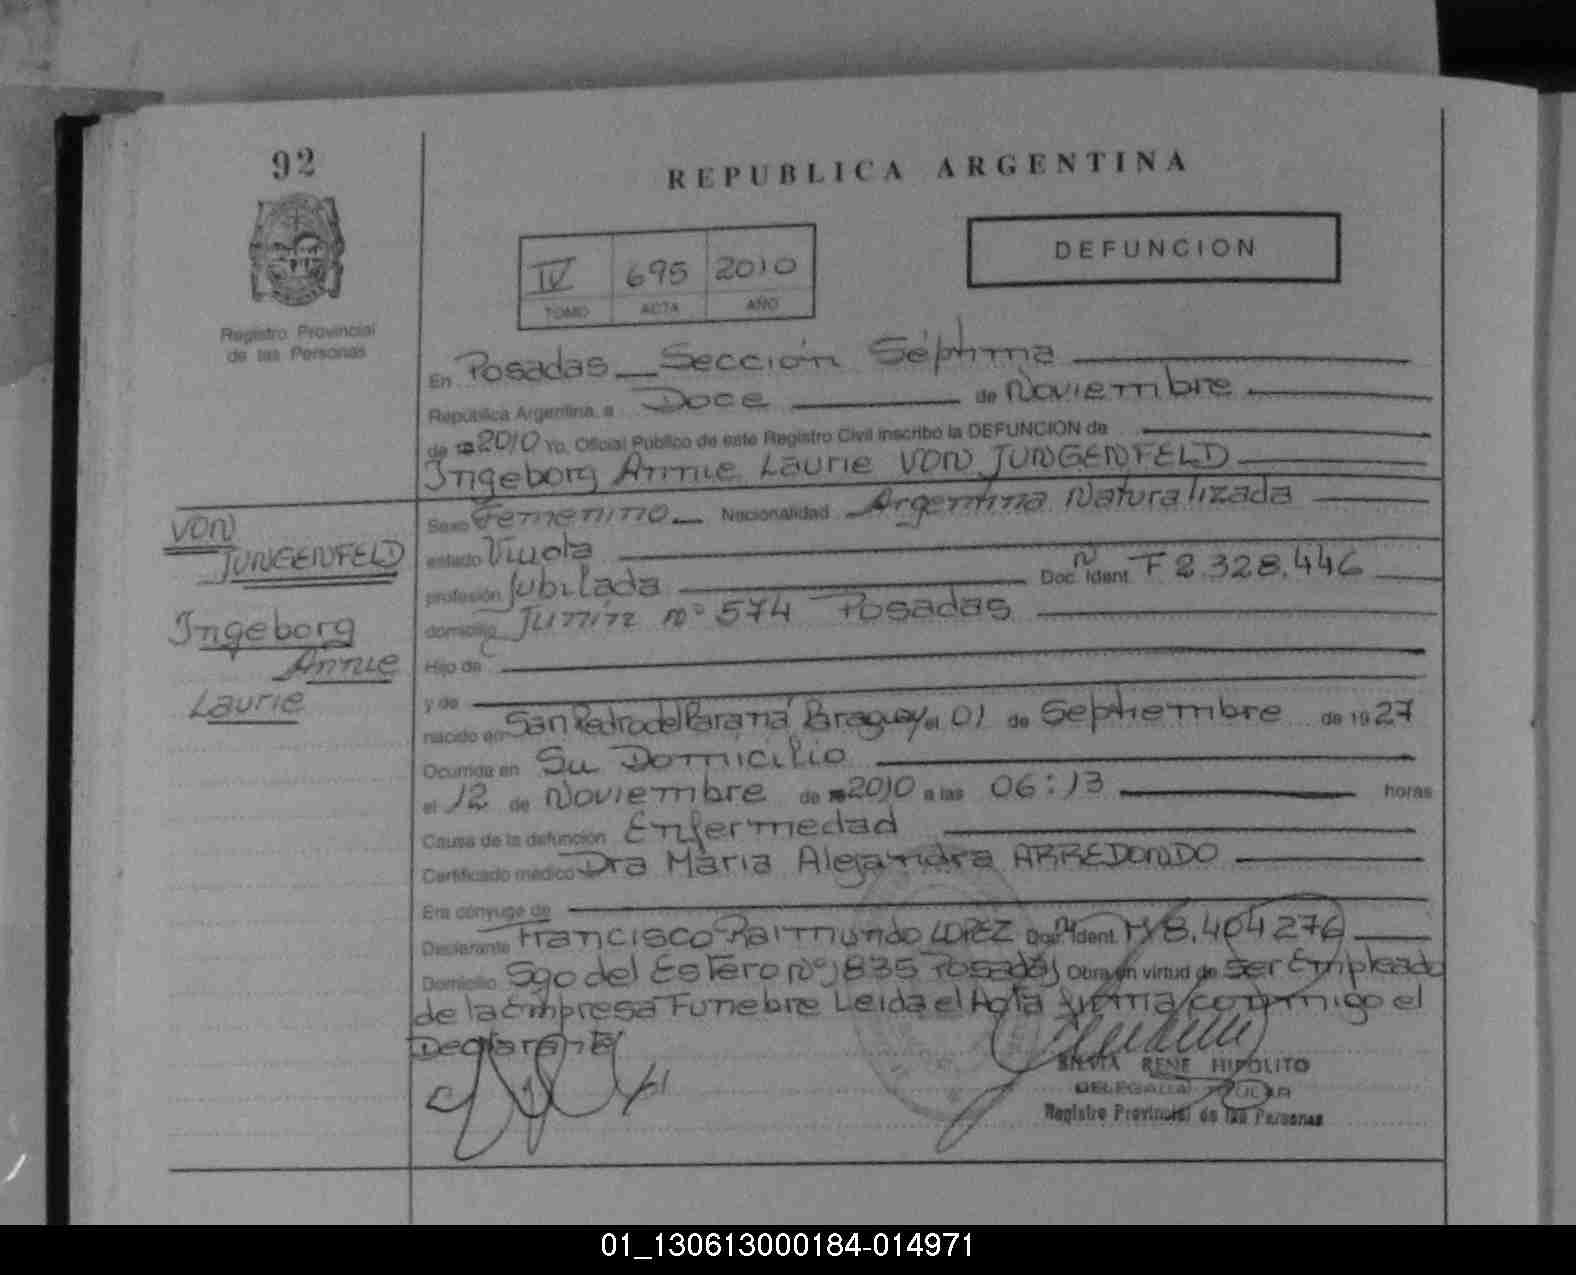 92
REPUBLICA ARGENTINA
Registro Provincial
de las Personas
IV 695 2010
TOMO ACTA AÑO
DEFUNCION
En Posadas Sección Séptima
República Argentina, a Doce de Noviembre
de 2010 Yo, Oficial Público de este Registro Civil inscribo la DEFUNCION de
Ingeborg Annie Laurie VON JUNGENFELD
VON
JUNGENFELD
Ingeborg
Annie
Laurie
Sexo Femenino Nacionalidad Argentina Naturalizada
estado Viuda
profesión Jubilada Doc. Nº Ident. F 2.328.446
domicilio Junín nº 574 Posadas
Hijo de
y de
nacido en San Pedro del Paraná Paraguay el 01 de Septiembre de 1927
Ocurrida en Su Domicilio
el 12 de Noviembre de 2010 a las 06:13 horas
Causa de la defunción Enfermedad
Certificado médico Dra María Alejandra ARREDONDO
Era cónyuge de
Declarante Francisco Raimundo LOPEZ Doc. Nº Ident. M 8.404276
Domicilio Sgo del Estero nº 1835 Posadas Obra en virtud de Ser Empleado
de la Empresa Funebre Leida el Acta firma conmigo el
Declarante
SILVIA RENE HIPOLITO
DELEGADA TITULAR
Registro Provincial de las Personas
01_130613000184-014971